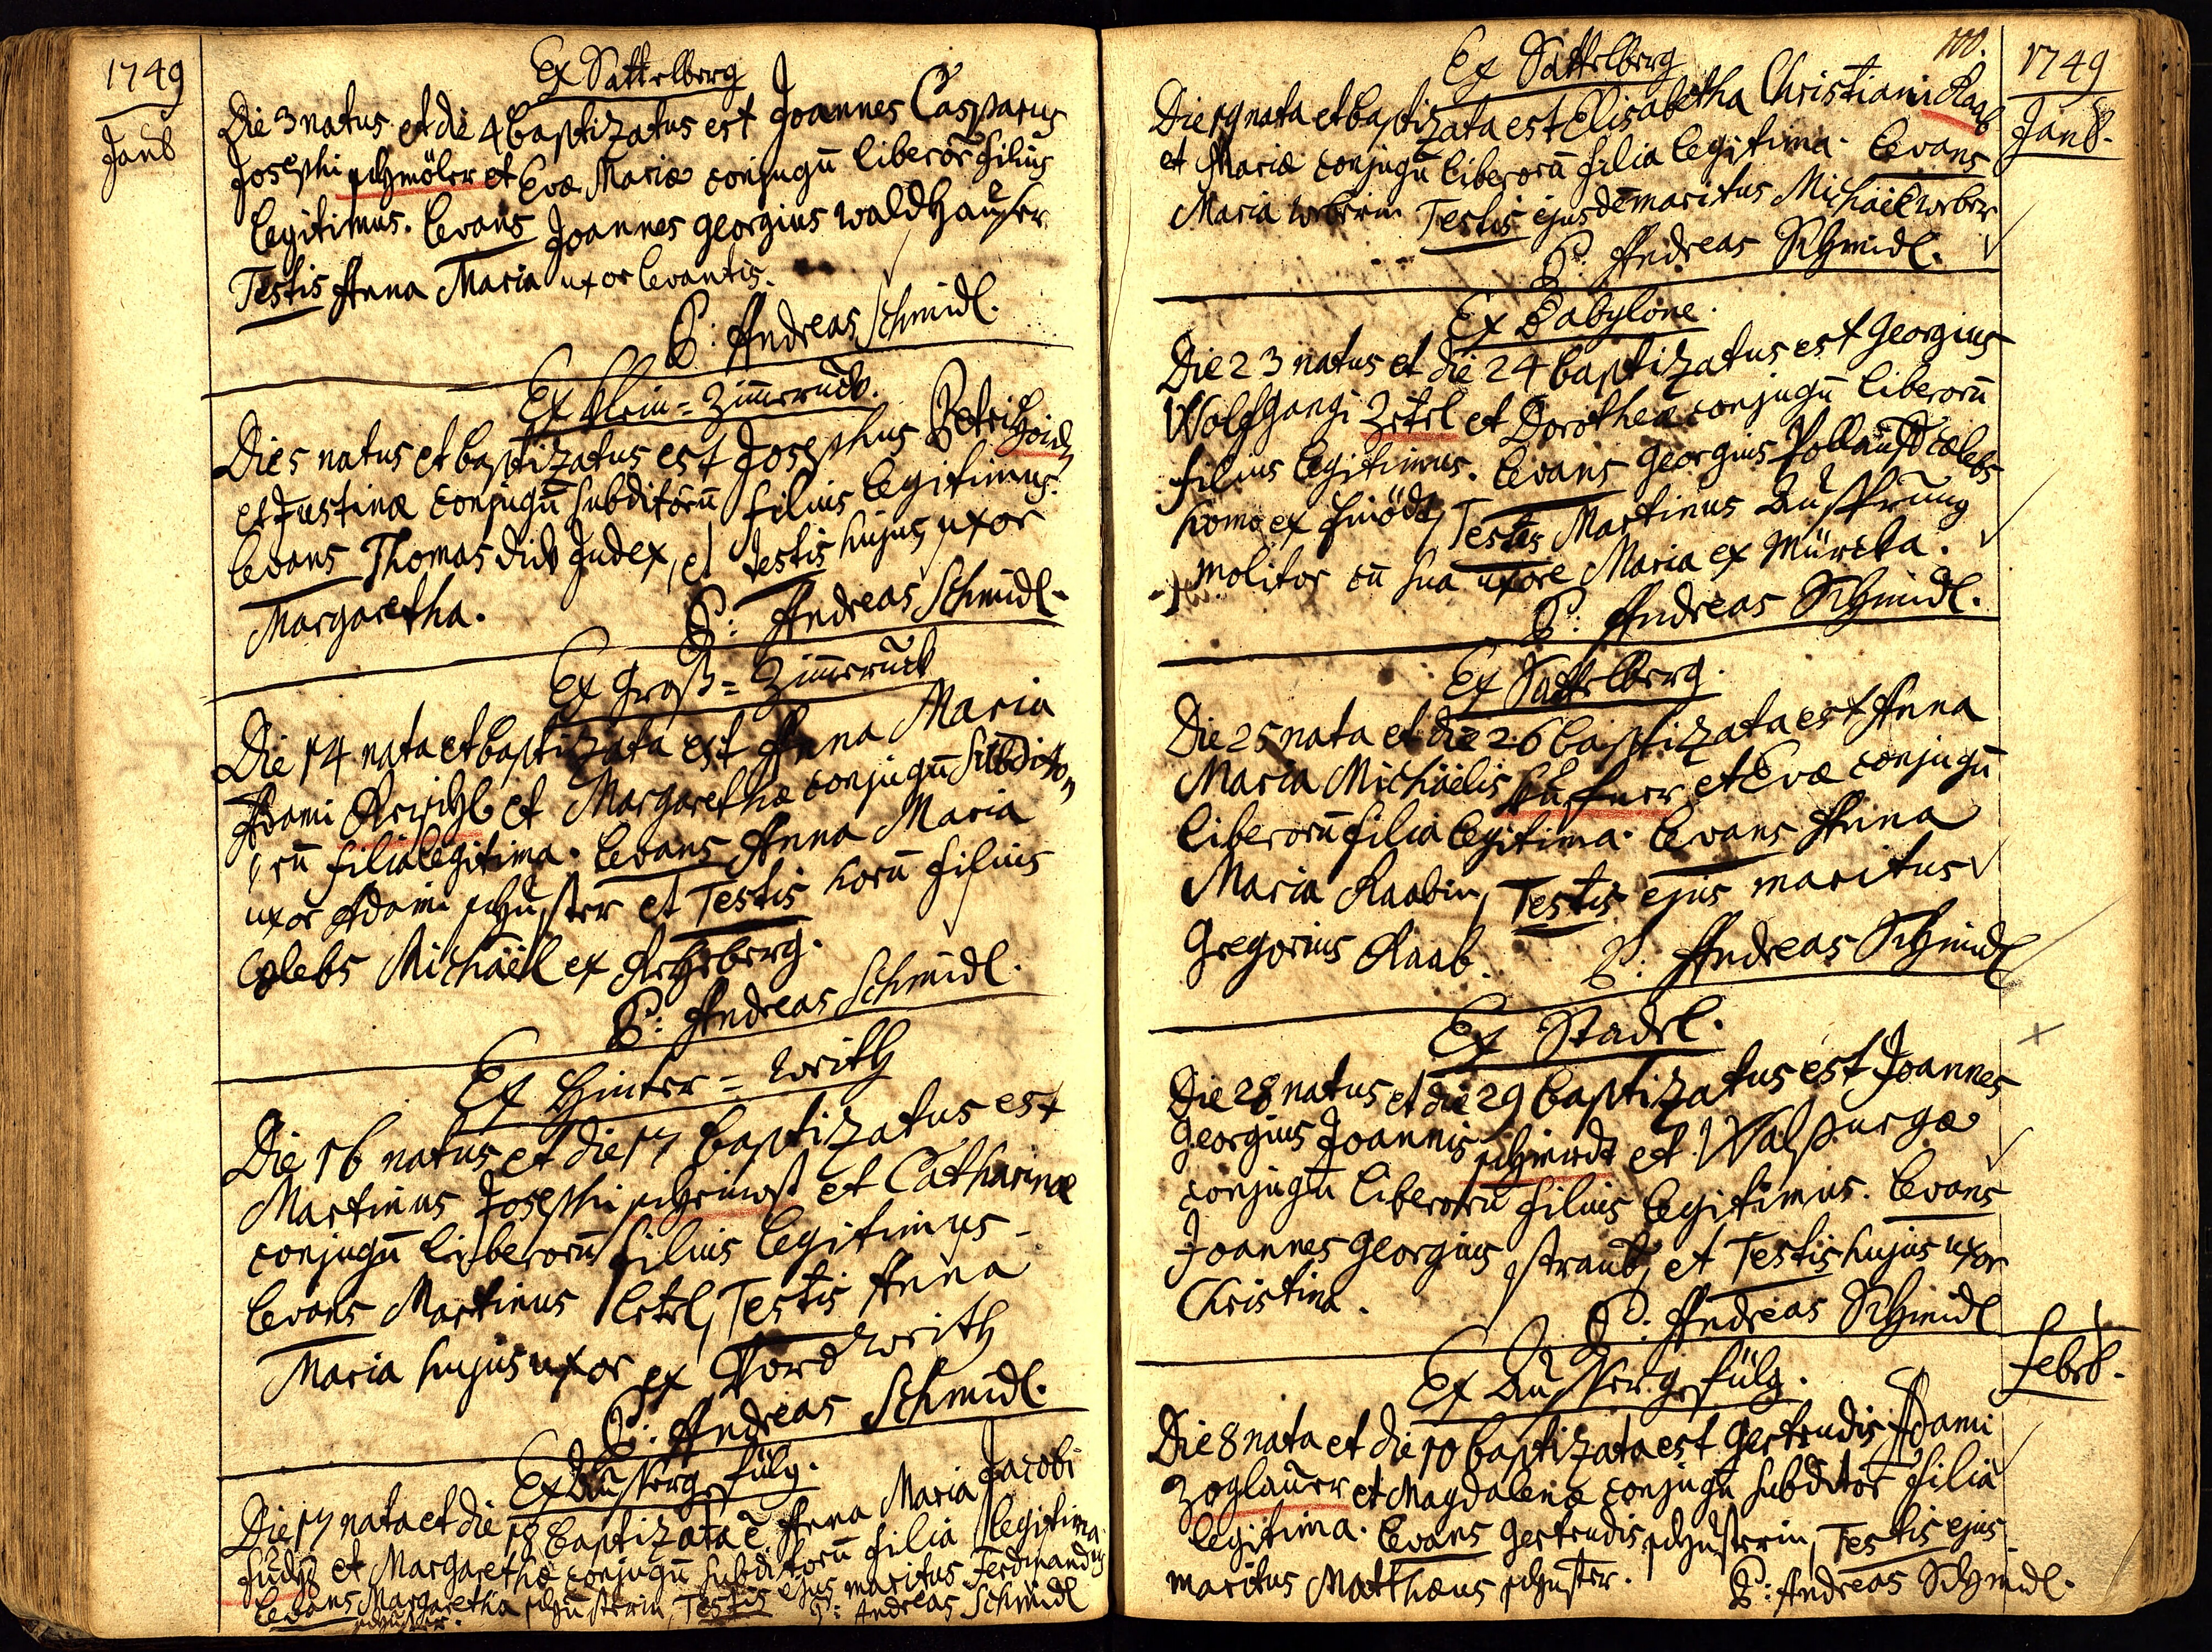 1749
Janȣ
Ex Sattelberg
Die 3 natus et die 4 baptizatus est Joannes Casparus
Josephi schmöler et Evæ Mariæ conjugū liberor̄ filius
legitimus. Levans Joannes georgius waldhauser
Testis Anna Maria uxor levantis.
P: Andreas Schmidl.
Ex Klein=Zim̄erruck.
Die 5 natus et baptizatus est Josephus Petri
et Justinæ conjugū subditorū filius legitimus.
Levans Thomas dick Judex, et testis hujus uxor
Margaretha.
P: Andreas Schmidl.
Ex groß=Zim̄erruck
Die 14 nata et baptizata est Anna Maria
Adami et Margarethæ conjugū subdito,,
,,rū filia legitima. Levans Anna Maria
uxor Adami schuster et Testis horū filius
cælebs Michäel ex
P: Andreas Schmidl.
Ex Hinter=weith
Die 16 natus et die 17 baptizatus est
Martinus Josephi et Catharinæ
conjugū liberorū filius legitimus
Levans Martinus Testis Anna
Maria hujus uxor ex Vordweith
P: Andreas Schmidl.
Ex
Die 17 nata et die 18 baptizata ē Anna Maria Jacobi
fuchs et Margarethæ conjugū subditorū filia legitima
Levans Margaretha schusterin, Testis ejus maritus Ferdinandus
schuster. P: Andreas Schmidl
100.
1749
Janȣ.
Ex Sattelberg
Die 19 nata et baptizata est Elisabetha Christiani Raab
et Mariæ conjugū liberorū filia legitima. Levans
Maria weberin Testis ejusdē maritus Michäel weber
P: Andreas Schmidl.
Ex Babylone.
Die 23 natus et die 24 baptizatus est Georgius
Wolfgangi Zetel et Dorotheæ conjugū liberorū
filius legitimus. Levans Georgius cælebs
homo ex Testis Martinus
molitor cū sua uxore Maria ex
P: Andreas Schmidl.
Ex Sattelberg.
Die 25 nata et die 26 baptizata est Anna
Maria Michäelis et Evæ conjugū
liberorū filia legitima. Levans Anna
Maria Raabin, Testis ejus maritus
Gregorius Raab.
P: Andreas Schmidl
Ex Stadel.
Die 28 natus et die 29 baptizatus est Joannes
Georgius Joannis schmidt et Walpurgæ
conjugū liberorū filius legitimus. Levans
Joannes Georgius straub, et Testis hujus uxor
Christina.
P: Andreas Schmidl
Febrȣ.
Ex
Die 8 nata et die 10 baptizata est Gertrudis Adami
Zoglauer et Magdalenæ conjugū subditor̄ filia
legitima. Levans Gertrudis schusterin, Testis ejus
maritus Matthæus schuster.
P: Andreas Schmidl.